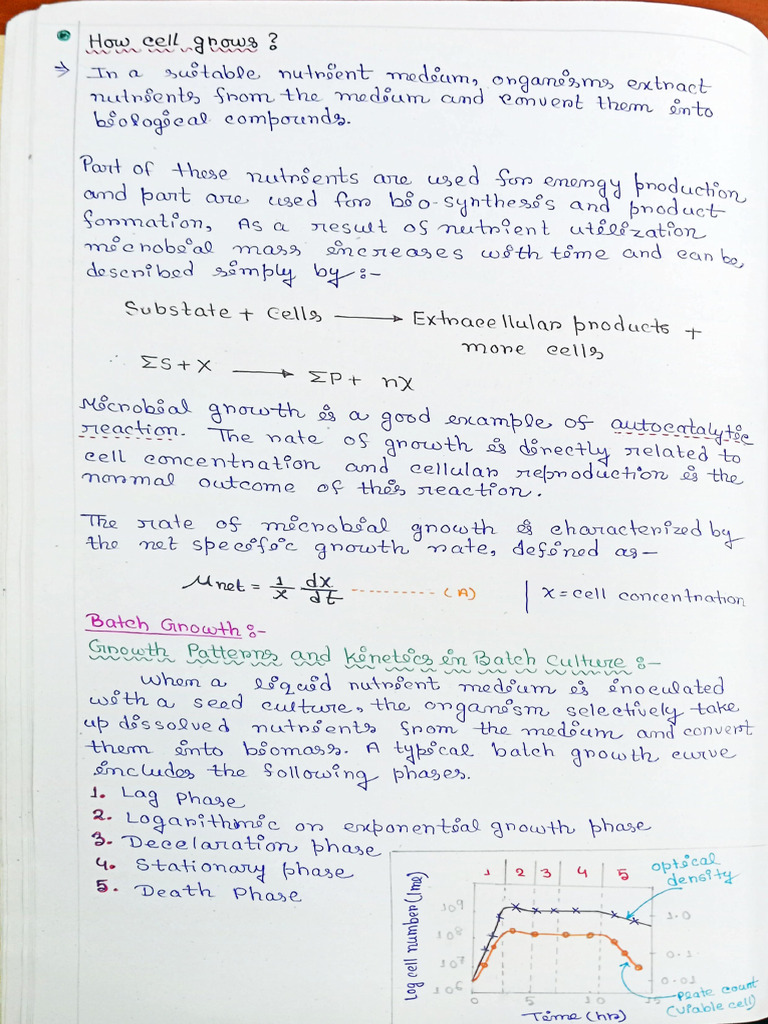 How cell grows?
→ In a suitable nutrient medium, organisms extract
nutrients from the medium and convert them into
biological compounds.
Part of these nutrients are used for energy production
and part are used for bio-synthesis and product
formation, As a result of nutrient utilization
microbial mass increases with time and can be,
described simply by:-
Substate + cells → Extracellular products +
more cells
∴ ΣS + X → ΣP + nX
Microbial growth is a good example of autocatalytic
reaction. The rate of growth is directly related to
cell concentration and cellular reproduction is the
normal outcome of this reaction.
The rate of microbial growth is characterized by
the net specific growth rate, defined as—
μnet = 1/x dx/dt ---------- (A) | X = cell concentration
Batch Growth:-
Growth Patterns and kinetics in Batch Culture:-
When a liquid nutrient medium is inoculated
with a seed culture, the organism selectively take
up dissolved nutrients from the medium and convert
them into biomass. A typical batch growth curve
includes the following phases.
1. Lag Phase
2. Logarithmic or exponential growth phase
3. Decelaration phase
4. Stationary phase
5. Death Phase
1 2 3 4 5
optical
density
Log cell number (1me)
10⁹
10⁸
10⁷
10⁶
1.0
0.1
0.01
0 5 10 15
Time (hr)
Plate count
(viable cell)